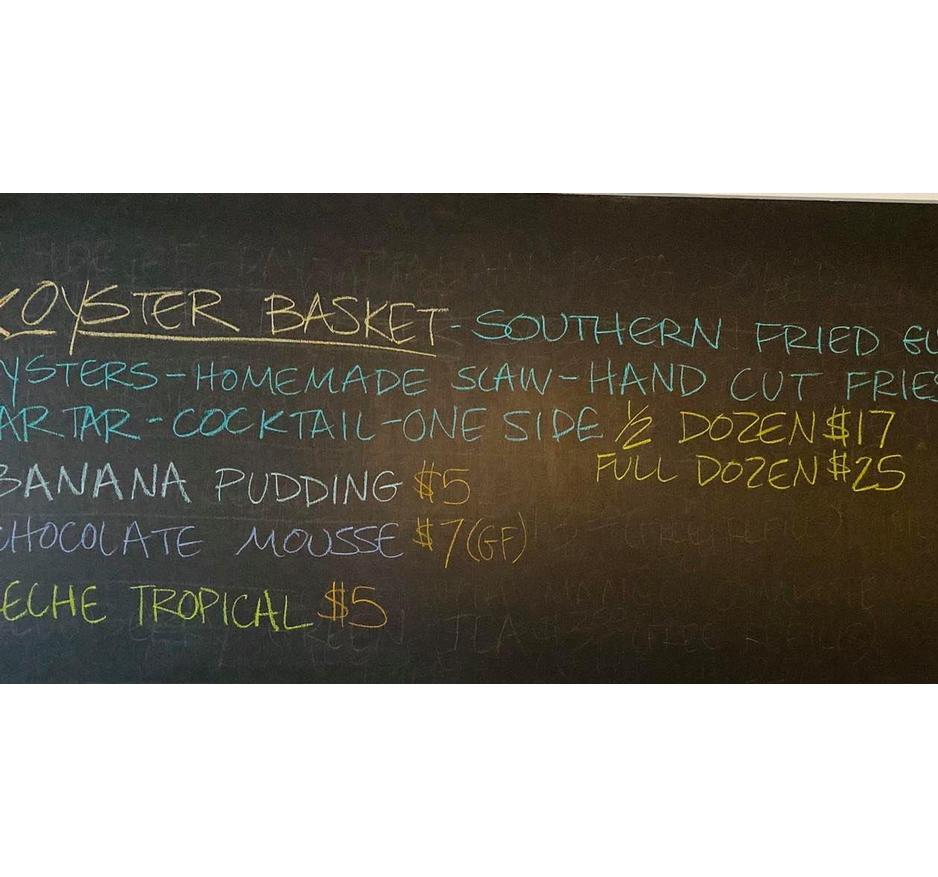 OYSTER BASKET - SOUTHERN FRIED
YSTERS - HOMEMADE SLAW - HAND CUT FRIES
ARTAR - COCKTAIL - ONE SIDE 1/2 DOZEN $17
FULL DOZEN $25
BANANA PUDDING $5
CHOCOLATE MOUSSE $7 (GF)
ECHE TROPICAL $5